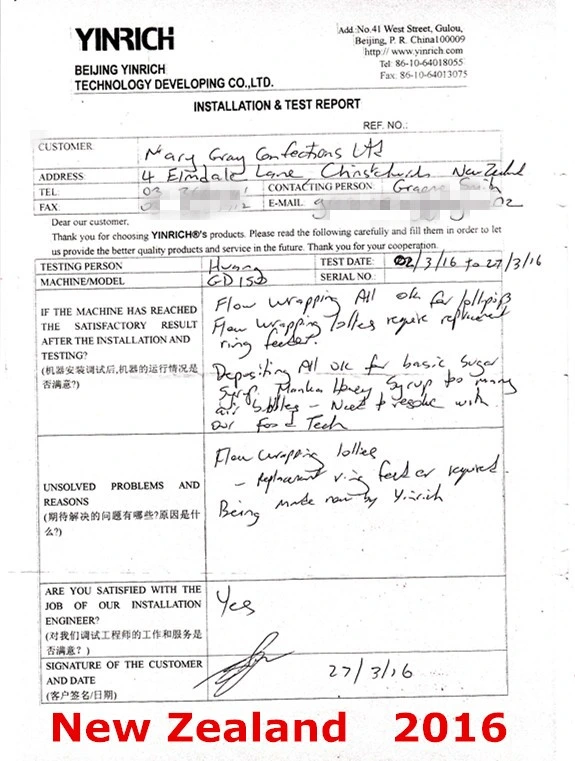 YINRICH
BEIJING YINRICH
TECHNOLOGY DEVELOPING CO.,LTD.
Add:No.41 West Street, Gulou,
Beijing, P. R. China100009
http:// www.yinrich.com
Tel: 86-10-64018055
Fax: 86-10-64013075
INSTALLATION & TEST REPORT
REF. NO.:
CUSTOMER Mary Gray Confections Ltd
ADDRESS 4 Elmdale Lane Christchurch New Zealand
TEL: 03 CONTACTING PERSON: Graeme Smith
FAX: E-MAIL
Dear our customer,
Thank you for choosing YINRICH®'s products. Please read the following carefully and fill them in order to let
us provide the better quality products and service in the future. Thank you for your cooperation.
TESTING PERSON Huang TEST DATE: 02/3/16 to 27/3/16
MACHINE/MODEL GD150 SERIAL NO.:
IF THE MACHINE HAS REACHED
THE SATISFACTORY RESULT
AFTER THE INSTALLATION AND
TESTING?
(机器安装调试后,机器的运行情况是
否满意?)
Flow wrapping All ok for lollipops
Flow wrapping lollies require replacement
ring feeder.
Depositing All ok for basic Sugar
Syrup. Manuka Honey Syrup too many
air bubbles - Need to resolve with
our Food Tech
UNSOLVED PROBLEMS AND
REASONS
(期待解决的问题有哪些?原因是什
么?)
Flow wrapping lollies
- replacement ring feeder required.
Being made now by Yinrich
ARE YOU SATISFIED WITH THE
JOB OF OUR INSTALLATION
ENGINEER?
(对我们调试工程师的工作和服务是
否满意?)
Yes
SIGNATURE OF THE CUSTOMER
AND DATE
(客户签名/日期)
27/3/16
New Zealand 2016